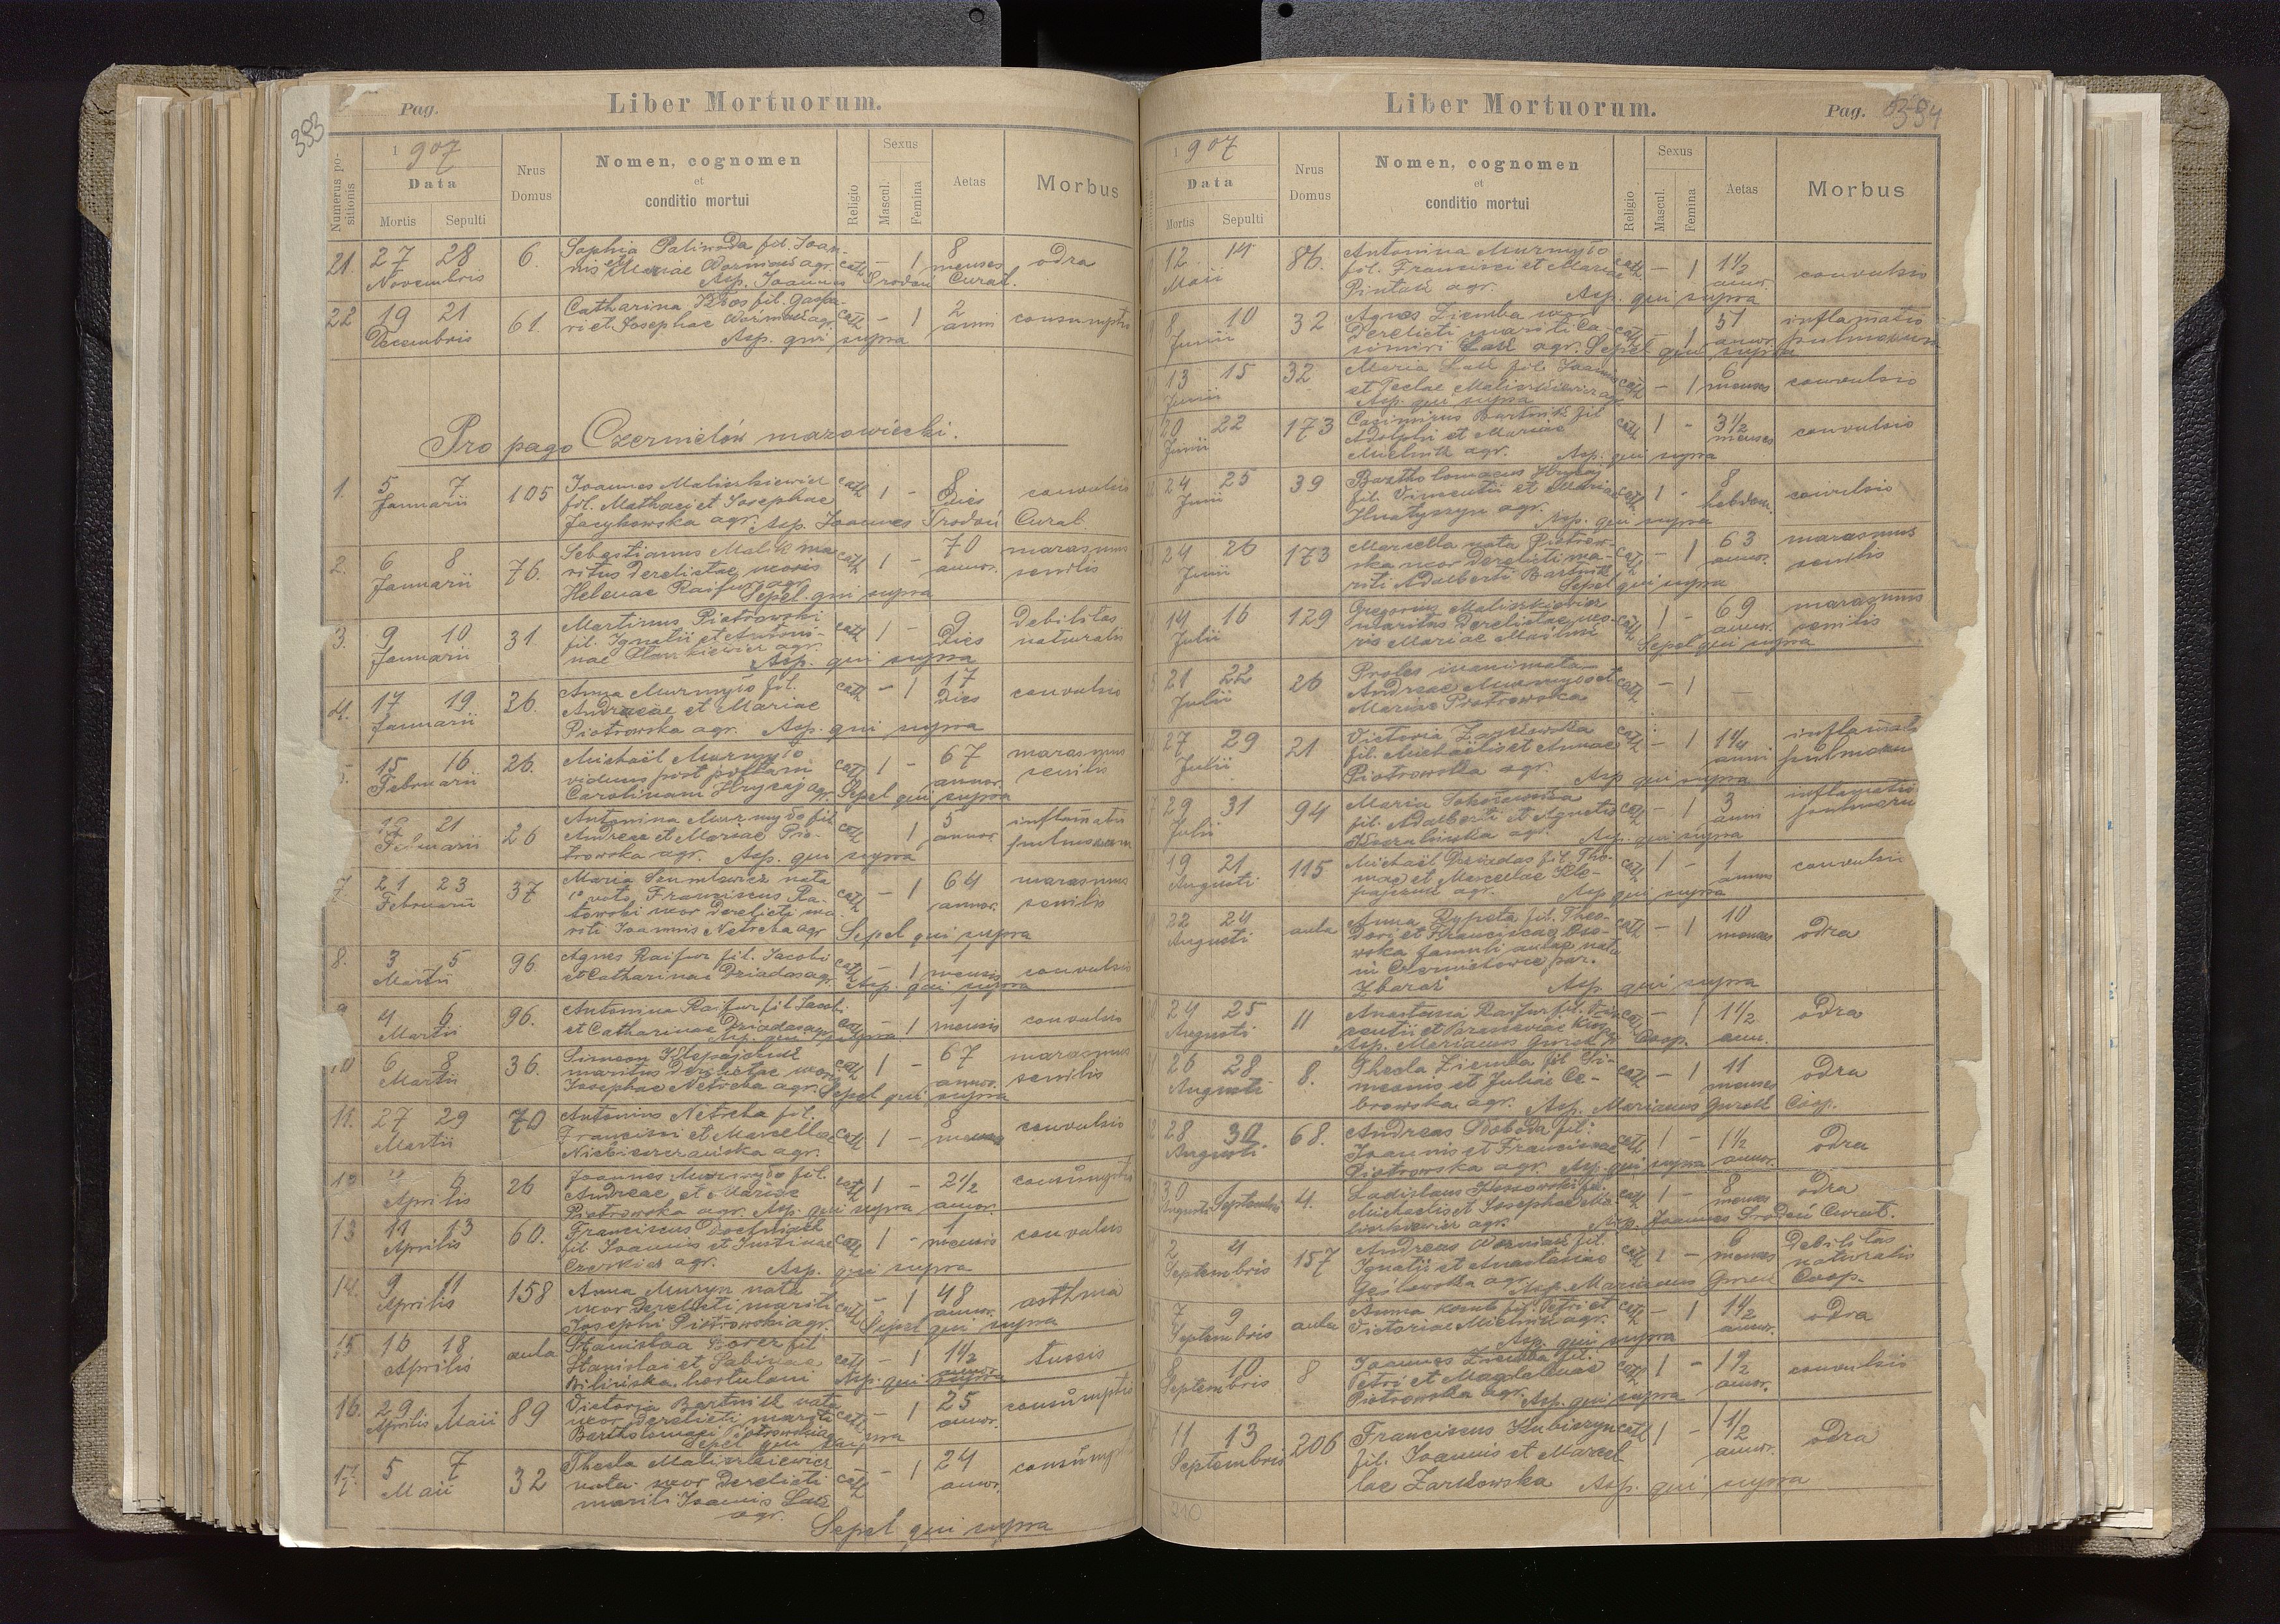 333
Pag.
Liber Mortuorum.
Numerus positionis
1907
Data
Mortis Sepulti
Nrus Domus
Nomen, cognomen
et
conditio mortui
Religio
Sexus
Mascul.
Femina
Aetas
Morbus
21. 27 28 6. Sophia Paliwoda fil. Joan- cath – 1 8 odra
Novembris nis et Mariae Woźniak agr. menses
Asp. Joannes Środoń Curat.
22 19 21 61. Catharina Kłos fil. Gaspa- cath – 1 2 consumptio
Decembris ri et Josephae Woźniak agr. anni
Asp. qui supra
Pro pago Czernielów mazowiecki.
1. 5 7 105 Joannes Maliszkiewicz cath 1 – 8 convulsio
Januarii fil. Mathaei et Josephae dies
Jacykowska agr. Asp. Joannes Środoń Curat.
2. 6 8 76. Sebastianus Malik ma- cath 1 – 70 marasmus
Januarii ritus derelictae uxoris annor. senilis
Helenae Raifur agr. Sepel. qui supra
3. 9 10 31. Martinus Piotrowski cath 1 – 9 debilitas
Januarii fil. Ignatii et Antoni- dies naturalis
nae agr.
Asp. qui supra
4. 17 19 26. Anna Murmyło fil. cath – 1 17 convulsio
Januarii Andreae et Mariae dies
Piotrowska agr. Asp. qui supra
5. 15 16 26. Michaël Murmyło cath 1 – 67 marasmus
Februarii viduus post annor. senilis
Carolinam Hrycaj agr. Sepel. qui supra
21 26 Antonina Murmyło fil. cath 1 5 inflamatio
Februarii Andreae et Mariae Pio- annor. pulmonum
trowska agr. Asp. qui supra
7. 21 23 37 Maria Szumlewicz nata cath – 1 64 marasmus
Februarii 1º voto Franciscus Ra- annor. senilis
towski uxor derelicti ma-
riti Joannis Netreba agr Sepel qui supra
8. 3 5 96 Agnes Raifur fil. Jacobi cath – 1 1 convulsio
Martii et Catharinae Dziadas agr. mensis
Asp. qui supra
9 4 6 96. Antonina Raifur fil Jacobi cath – 1 1 convulsio
Martii et Catharinae Dziadas agr. mensis
Asp. qui supra
10 6 8 36. Simeon Klepajczuk cath 1 – 67 marasmus
Martii maritus derelictae uxoris annor. senilis
Josephae Netreba agr. Sepel qui supra
11. 27 29 70 Antonius Netreba fil. cath 1 – 8 convulsio
Martii Francisci et Marcellae menses
agr.
12 6 26 Joannes Murmyło fil. cath 1 – 2 1/2 consumptio
Aprilis Andreae et Mariae annor.
Piotrowska agr. Asp. qui supra
13 11 13 60. Franciscus cath 1 – 1 convulsio
Aprilis fil. Joannis et Justinae mensis
agr. Asp. qui supra
14. 9 11 158 Anna Muryn nata cath – 1 48 asthma
Aprilis uxor derelicti mariti annor.
Josephi Piotrowski agr. Sepel qui supra
15 16 18 aula Stanislaa fil cath – 1 1 1/2 tussis
Aprilis Stanislai et Sabinae annor.
Bilińska hortulani Asp. qui supra
16. 29 89 Victoria Bartnik nata cath – 1 25 consumptio
Aprilis Maii uxor derelicti mariti annor.
Bartholomaei Piotrowski agr.
Sepel qui supra
17. 5 7 32 Thecla Maliszkiewicz cath – 1 24 consumptio
Maii nata uxor derelicti annor.
mariti Joannis
agr.
Sepel qui supra
Liber Mortuorum.
Pag. 334
1907
Data
Mortis Sepulti
Nrus Domus
Nomen, cognomen
et
conditio mortui
Religio
Sexus
Mascul.
Femina
Aetas
Morbus
12 14 86. Antonina Murmyło cath – 1 1 1/2 convulsio
Maii fil. Francisci et Mariae annor.
agr. Asp. qui supra
8 10 32 Agnes Ziemba uxor cath – 1 51 inflamatio
Junii derelicti mariti Ca- annor. pulmonum
simiri agr. Sepel qui supra
13 15 32 Maria fil. Joannis cath – 1 6 convulsio
Junii et Teclae Maliszkiewicz agr. menses
Asp. qui supra
20 22 173 Casimirus Bartnik fil cath 1 – 3 1/2 convulsio
Junii Adolphi et Mariae menses
Mielnik agr. Asp. qui supra
24 25 39 Bartholomaeus Hrycaj cath 1 – 8 convulsio
Junii fil. Vincentii et Mariae hebdom.
Hnatyszyn agr. Asp. qui supra
24 26 173 Marcella nata Piotrow- cath – 1 63 marasmus
Junii ska uxor derelicti ma- annor. senilis
riti Adalberti Bartnik
Sepel qui supra
14 16 129 Gregorius Maliszkiewicz cath 1 – 69 marasmus
Julii maritus derelictae uxo- annor. senilis
ris Mariae Sepel qui supra
21 22 26 Proles inanimata cath – 1 –
Julii Andreae Murmyło et
Mariae Piotrowska
27 29 21 Victoria cath – 1 1 1/4 inflamatio
Julii fil. Michaelis et Annae anni pulmonum
Piotrowska agr. Asp qui supra
29 31 94 Maria cath – 1 3 inflamatio
Julii fil. Adalberti et Agnetis anni pulmonum
agr. Asp. qui supra
19 21 115 Michaël Dziadas fil. Tho- cath 1 – 1 convulsio
Augusti mae et Marcellae Kle- annus
pajczuk agr. Asp qui supra
22 24 aula Anna Rypeta fil. Theo- cath – 1 10 odra
Augusti dori et Franciscae Oso- menses
wska famuli aulae nata
in Czernichowce par.
Zbaraż Asp. qui supra
24 25 11 Anastasia Raifur fil. Vin- cath – 1 1 1/2 odra
Augusti centii et Parasceviae ann.
Asp. Marianus Gurak Coop.
26 28 8. Thecla Ziemba fil Si- cath – 1 11 odra
Augusti meonis et Juliae Ce- menses
browska agr. Asp. Marianus Gurak Coop.
28 30. 68. Andreas fil. cath 1 – 1 1/2 odra
Augusti Joannis et Franciscae annor.
Piotrowska agr. Asp. qui supra
30 1 4. Ladislaus fil. cath 1 – 8 odra
Augusti Septembris Michaelis et Josephae Ma- menses
liszkiewicz agr. Asp. Joannes Środoń Curat.
2 4 157 Andreas Woźniak fil. cath 1 – 6 debilitas
Septembris Ignatii et Anastasiae menses naturalis
agr. Asp. Marianus Gurak Coop.
7 9 aula Anna fil. Petri et cath – 1 1 1/2 odra
Septembris Victoriae Mielnik agr. annor.
Asp. qui supra
8 10 8 Joannes Ziemba fil. cath 1 – 1 1/2 convulsio
Septembris Petri et Magdalenae annor.
Piotrowska agr. Asp. qui supra
11 13 206 Franciscus Kubiszyn cath 1 – 1 1/2 odra
Septembris fil. Joannis et Marcel- annor.
lae Zarkowska Asp. qui supra
210